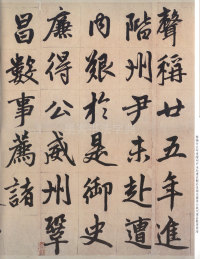 聲稱廿五年進
階州尹未赴遭
内艱於是御史
廉得公威州鞏
昌數事薦諸